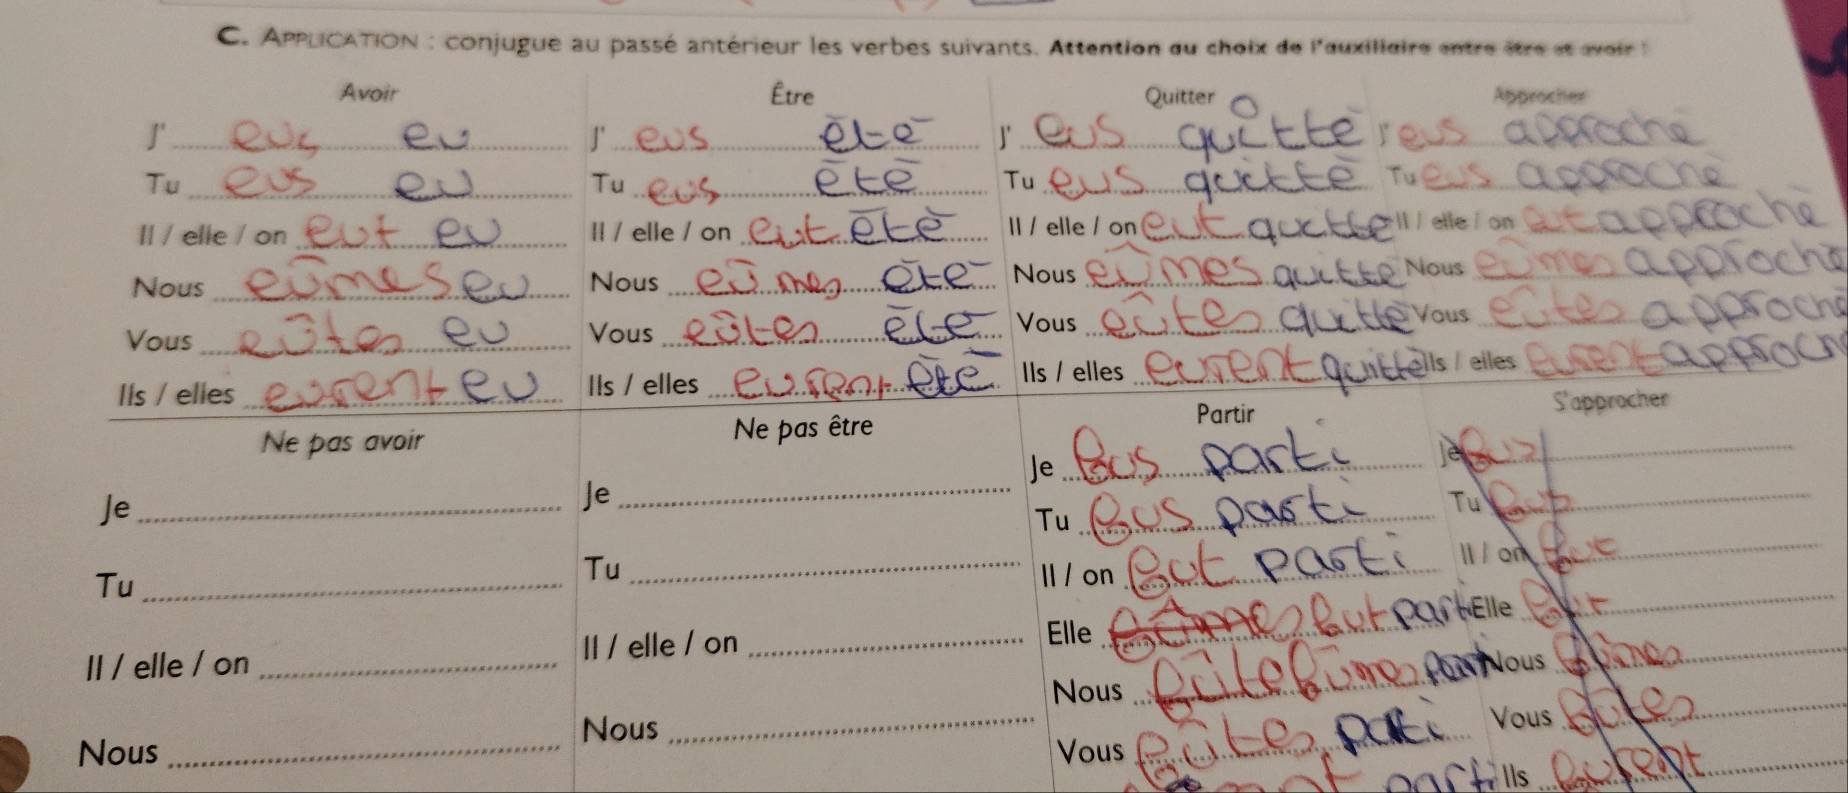 C. APPLICATION : conjugue au passé antérieur les verbes suivants. Attention au choix de l'auxiliaire entre être et avoir !
Avoir
J' eus eu
Tu eus eu
Il / elle / on eut eu
Nous eûmes eu
Vous eûtes eu
Ils / elles eurent eu
Être
J' eus été
Tu eus été
Il / elle / on eut été
Nous eûmes été
Vous eûtes été
Ils / elles eurent été
Quitter
J' eus quitté
Tu eus quitté
Il / elle / on eut quitté
Nous eûmes quitté
Vous eûtes quitté
Ils / elles eurent quitté
Approcher
J' eus approché
Tu eus approché
Il / elle / on eut approché
Nous eûmes approché
Vous eûtes approch
Ils / elles eurent approch
Ne pas avoir
Je
Tu
Il / elle / on
Nous
Ne pas être
Je
Tu
Il / elle / on
Nous
Partir
Je eus parti
Tu eus parti
Il / on eut parti
Elle eut parti
Nous eûmes
Vous eûtes parti
parti
S'approcher
Je
Tu eus
Il / on eut
Elle eut
Nous eûmes
Vous eûtes
Ils eurent